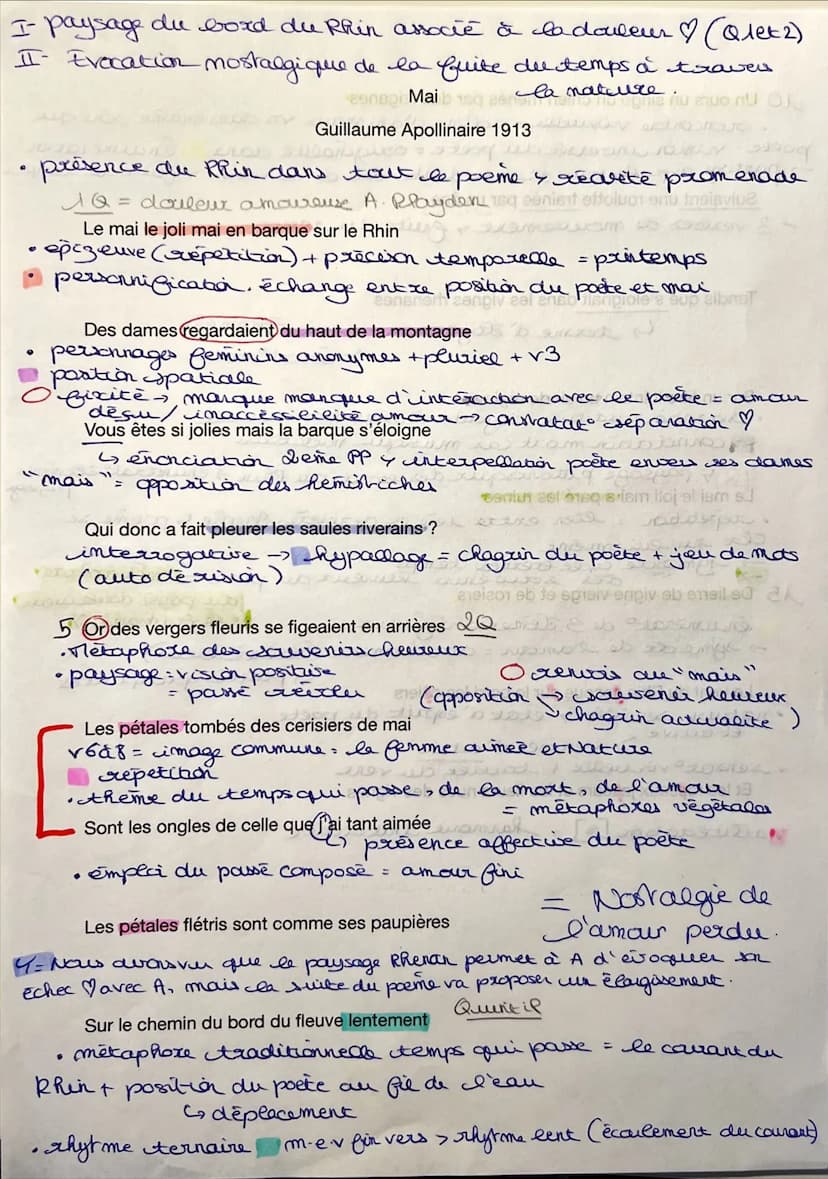 I- paysage du bord du Rhin associé à la douleur ♡ (Q1et2)
II- Evocation nostalgique de la fuite du temps à travers
la nature.
Mai
Guillaume Apollinaire 1913
• présence du Rhin dans tout le poème
promenade
1Q = douleur amoureuse A. Playden
Le mai le joli mai en barque sur le Rhin
• épizeuve (répétition) + précision temporelle = printemps
personnification. échange entre position du poète et mai
Des dames regardaient du haut de la montagne
• personnages féminins anonymes + pluriel + v3
position spatiale
fixité → marque manque d'intéraction avec le poète = amour
déçu / inaccessibilité amour → constatat° séparation ♡
Vous êtes si jolies mais la barque s'éloigne
↳ énonciation 2ème PP
interpellation poète envers ses dames
"mais" = opposition des hémistiches
Qui donc a fait pleurer les saules riverains ?
interrogative → hypallage = chagrin du poète + jeu de mots
(auto dérision)
5 Or des vergers fleuris se figeaient en arrières 2Q
• Métaphore des souvenirs heureux
• paysage : vision positive
= passé révolu
renvois au "mais"
(opposition → souvenir heureux
↘ chagrin actualité )
Les pétales tombés des cerisiers de mai
v6à8 = image commune : la femme aimée et Nature
répétition
• thème du temps qui passe, de la mort, de l'amour
= métaphores végétales
Sont les ongles de celle que j'ai tant aimée
↳ présence affective du poète
• emploi du passé composé = amour fini
= Nostalgie de
l'amour perdu.
Les pétales flétris sont comme ses paupières
Nous avons vu que le paysage Rhénan permet à A d'évoquer son
échec ♡ avec A, mais la suite du poème va proposer un élargissement.
Quintil
Sur le chemin du bord du fleuve lentement
• métaphore traditionnelle temps qui passe = le courant du
Rhin + position du poète au fil de l'eau
↳ déplacement
• rhytme ternaire m-e-v fin vers > rhytme lent (écoulement du courant)